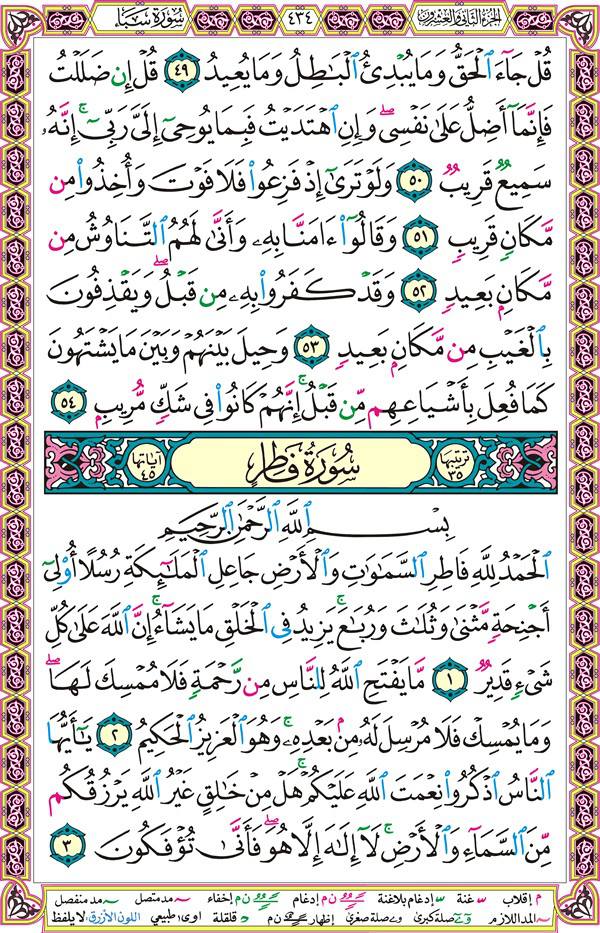 الجزء الثاني والعشرون ٤٣٤ سورة سبأ
قُلْ جَآءَ ٱلْحَقُّ وَمَا يُبْدِئُ ٱلْبَٰطِلُ وَمَا يُعِيدُ ٤٩ قُلْ إِن ضَلَلْتُ
فَإِنَّمَآ أَضِلُّ عَلَىٰ نَفْسِىۖ وَإِنِ ٱهْتَدَيْتُ فَبِمَا يُوحِىٓ إِلَىَّ رَبِّىٓۚ إِنَّهُۥ
سَمِيعٌ قَرِيبٌ ٥٠ وَلَوْ تَرَىٰٓ إِذْ فَزِعُوا۟ فَلَا فَوْتَ وَأُخِذُوا۟ مِن
مَّكَانٍ قَرِيبٍ ٥١ وَقَالُوٓا۟ ءَامَنَّا بِهِۦ وَأَنَّىٰ لَهُمُ ٱلتَّنَاوُشُ مِن
مَّكَانٍۭ بَعِيدٍ ٥٢ وَقَدْ كَفَرُوا۟ بِهِۦ مِن قَبْلُۖ وَيَقْذِفُونَ
بِٱلْغَيْبِ مِن مَّكَانٍۭ بَعِيدٍ ٥٣ وَحِيلَ بَيْنَهُمْ وَبَيْنَ مَا يَشْتَهُونَ
كَمَا فُعِلَ بِأَشْيَاعِهِم مِّن قَبْلُۚ إِنَّهُمْ كَانُوا۟ فِى شَكٍّ مُّرِيبٍۭ ٥٤
ترتيبها ٣٥ سُورَةُ فَاطِرٍ آياتها ٤٥
بِسْمِ ٱللَّهِ ٱلرَّحْمَٰنِ ٱلرَّحِيمِ
ٱلْحَمْدُ لِلَّهِ فَاطِرِ ٱلسَّمَٰوَٰتِ وَٱلْأَرْضِ جَاعِلِ ٱلْمَلَٰٓئِكَةِ رُسُلًا أُو۟لِىٓ
أَجْنِحَةٍ مَّثْنَىٰ وَثُلَٰثَ وَرُبَٰعَۚ يَزِيدُ فِى ٱلْخَلْقِ مَا يَشَآءُۚ إِنَّ ٱللَّهَ عَلَىٰ كُلِّ
شَىْءٍ قَدِيرٌ ١ مَّا يَفْتَحِ ٱللَّهُ لِلنَّاسِ مِن رَّحْمَةٍ فَلَا مُمْسِكَ لَهَاۖ
وَمَا يُمْسِكْ فَلَا مُرْسِلَ لَهُۥ مِنۢ بَعْدِهِۦۚ وَهُوَ ٱلْعَزِيزُ ٱلْحَكِيمُ ٢ يَٰٓأَيُّهَا
ٱلنَّاسُ ٱذْكُرُوا۟ نِعْمَتَ ٱللَّهِ عَلَيْكُمْۚ هَلْ مِنْ خَٰلِقٍ غَيْرُ ٱللَّهِ يَرْزُقُكُم
مِّنَ ٱلسَّمَآءِ وَٱلْأَرْضِۚ لَآ إِلَٰهَ إِلَّا هُوَۖ فَأَنَّىٰ تُؤْفَكُونَ ٣
م إقلاب غنة إدغام بلاغنة ن م إدغام ن م إخفاء مد متصل مد منفصل
المد اللازم صلة كبرى صلة صغرى إظهار ن م قلقلة اوى طبيعي اللون الأزرق: لا يلفظ